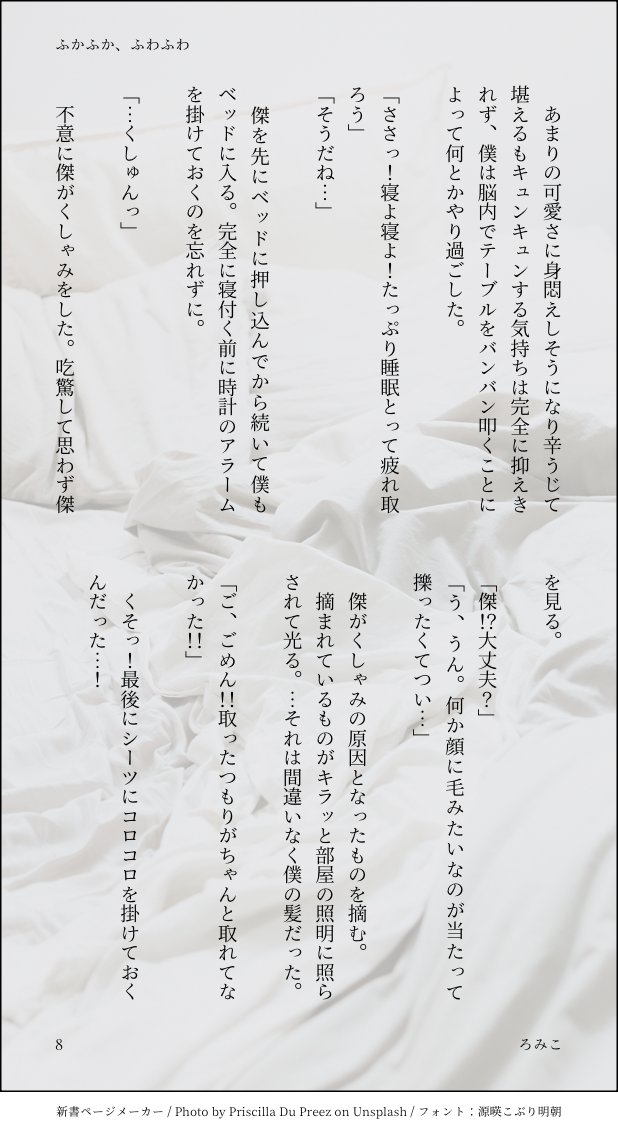 ふかふか、ふわふわ
あまりの可愛さに身悶えしそうになり辛うじて
堪えるもキュンキュンする気持ちは完全に抑えき
れず、僕は脳内でテーブルをバンバン叩くことに
よって何とかやり過ごした。
「ささっ！寝よ寝よ！たっぷり睡眠とって疲れ取
ろう」
「そうだね…」
傑を先にベッドに押し込んでから続いて僕も
ベッドに入る。完全に寝付く前に時計のアラーム
を掛けておくのを忘れずに。
「…くしゅんっ」
不意に傑がくしゃみをした。吃驚して思わず傑
を見る。
「傑⁉大丈夫？」
「う、うん。何か顔に毛みたいなのが当たって
擽ったくてつい…」
傑がくしゃみの原因となったものを摘む。
摘まれているものがキラッと部屋の照明に照ら
されて光る。…それは間違いなく僕の髪だった。
「ご、ごめん‼取ったつもりがちゃんと取れてな
かった‼」
くそっ！最後にシーツにコロコロを掛けておく
んだった…！
8
ろみこ
新書ページメーカー / Photo by Priscilla Du Preez on Unsplash / フォント：源暎こぶり明朝